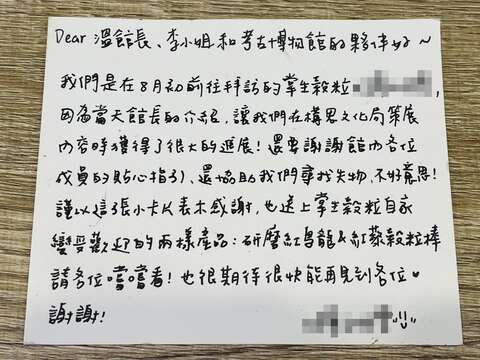 Dear 溫館長、李小姐和考古博物館的夥伴好~
我們是在8月初前往拜訪的掌生穀粒
因為當天館長的介紹，讓我們在構思文化局策展
內容時獲得了很大的進展！還要謝謝館內各位
成員的貼心指引、還協助我們尋找失物，不好意思！
謹以這張小卡片表示感謝，也送上掌生穀粒自家
變受歡迎的兩樣產品：研磨紅烏龍&紅藜穀粒棒
請各位嚐嚐看！也很期待很快能再見到各位♥
謝謝！